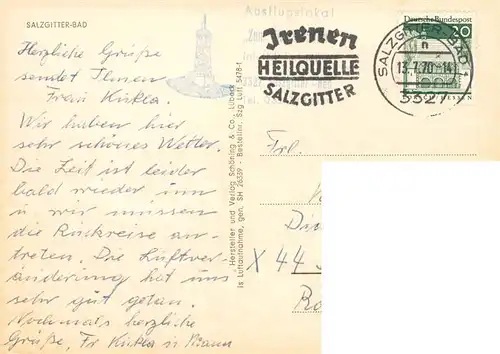 SALZGITTER-BAD
Herzliche Grüße
sendet Ihnen
Frau Kukla.
Wir haben hier
sehr schönes Wetter.
Die Zeit ist leider
bald wieder um
u wir müssen
die Rückreise an-
treten. Die Luftver-
änderung hat uns
sehr gut getan.
Nochmals herzliche
Grüße, Fr Kukla u Mann
Hersteller und Verlag Schöning & Co., Lübeck
Is Luftaufnahme, gen. SH 26339 - Bestellnr. Szg Luft
Ausflugslokal
Irenen
HEILQUELLE
SALZGITTER
Deutsche Bundespost
20
SALZGITTER-BAD
13.7.70-14
3327
Frl.
X 44